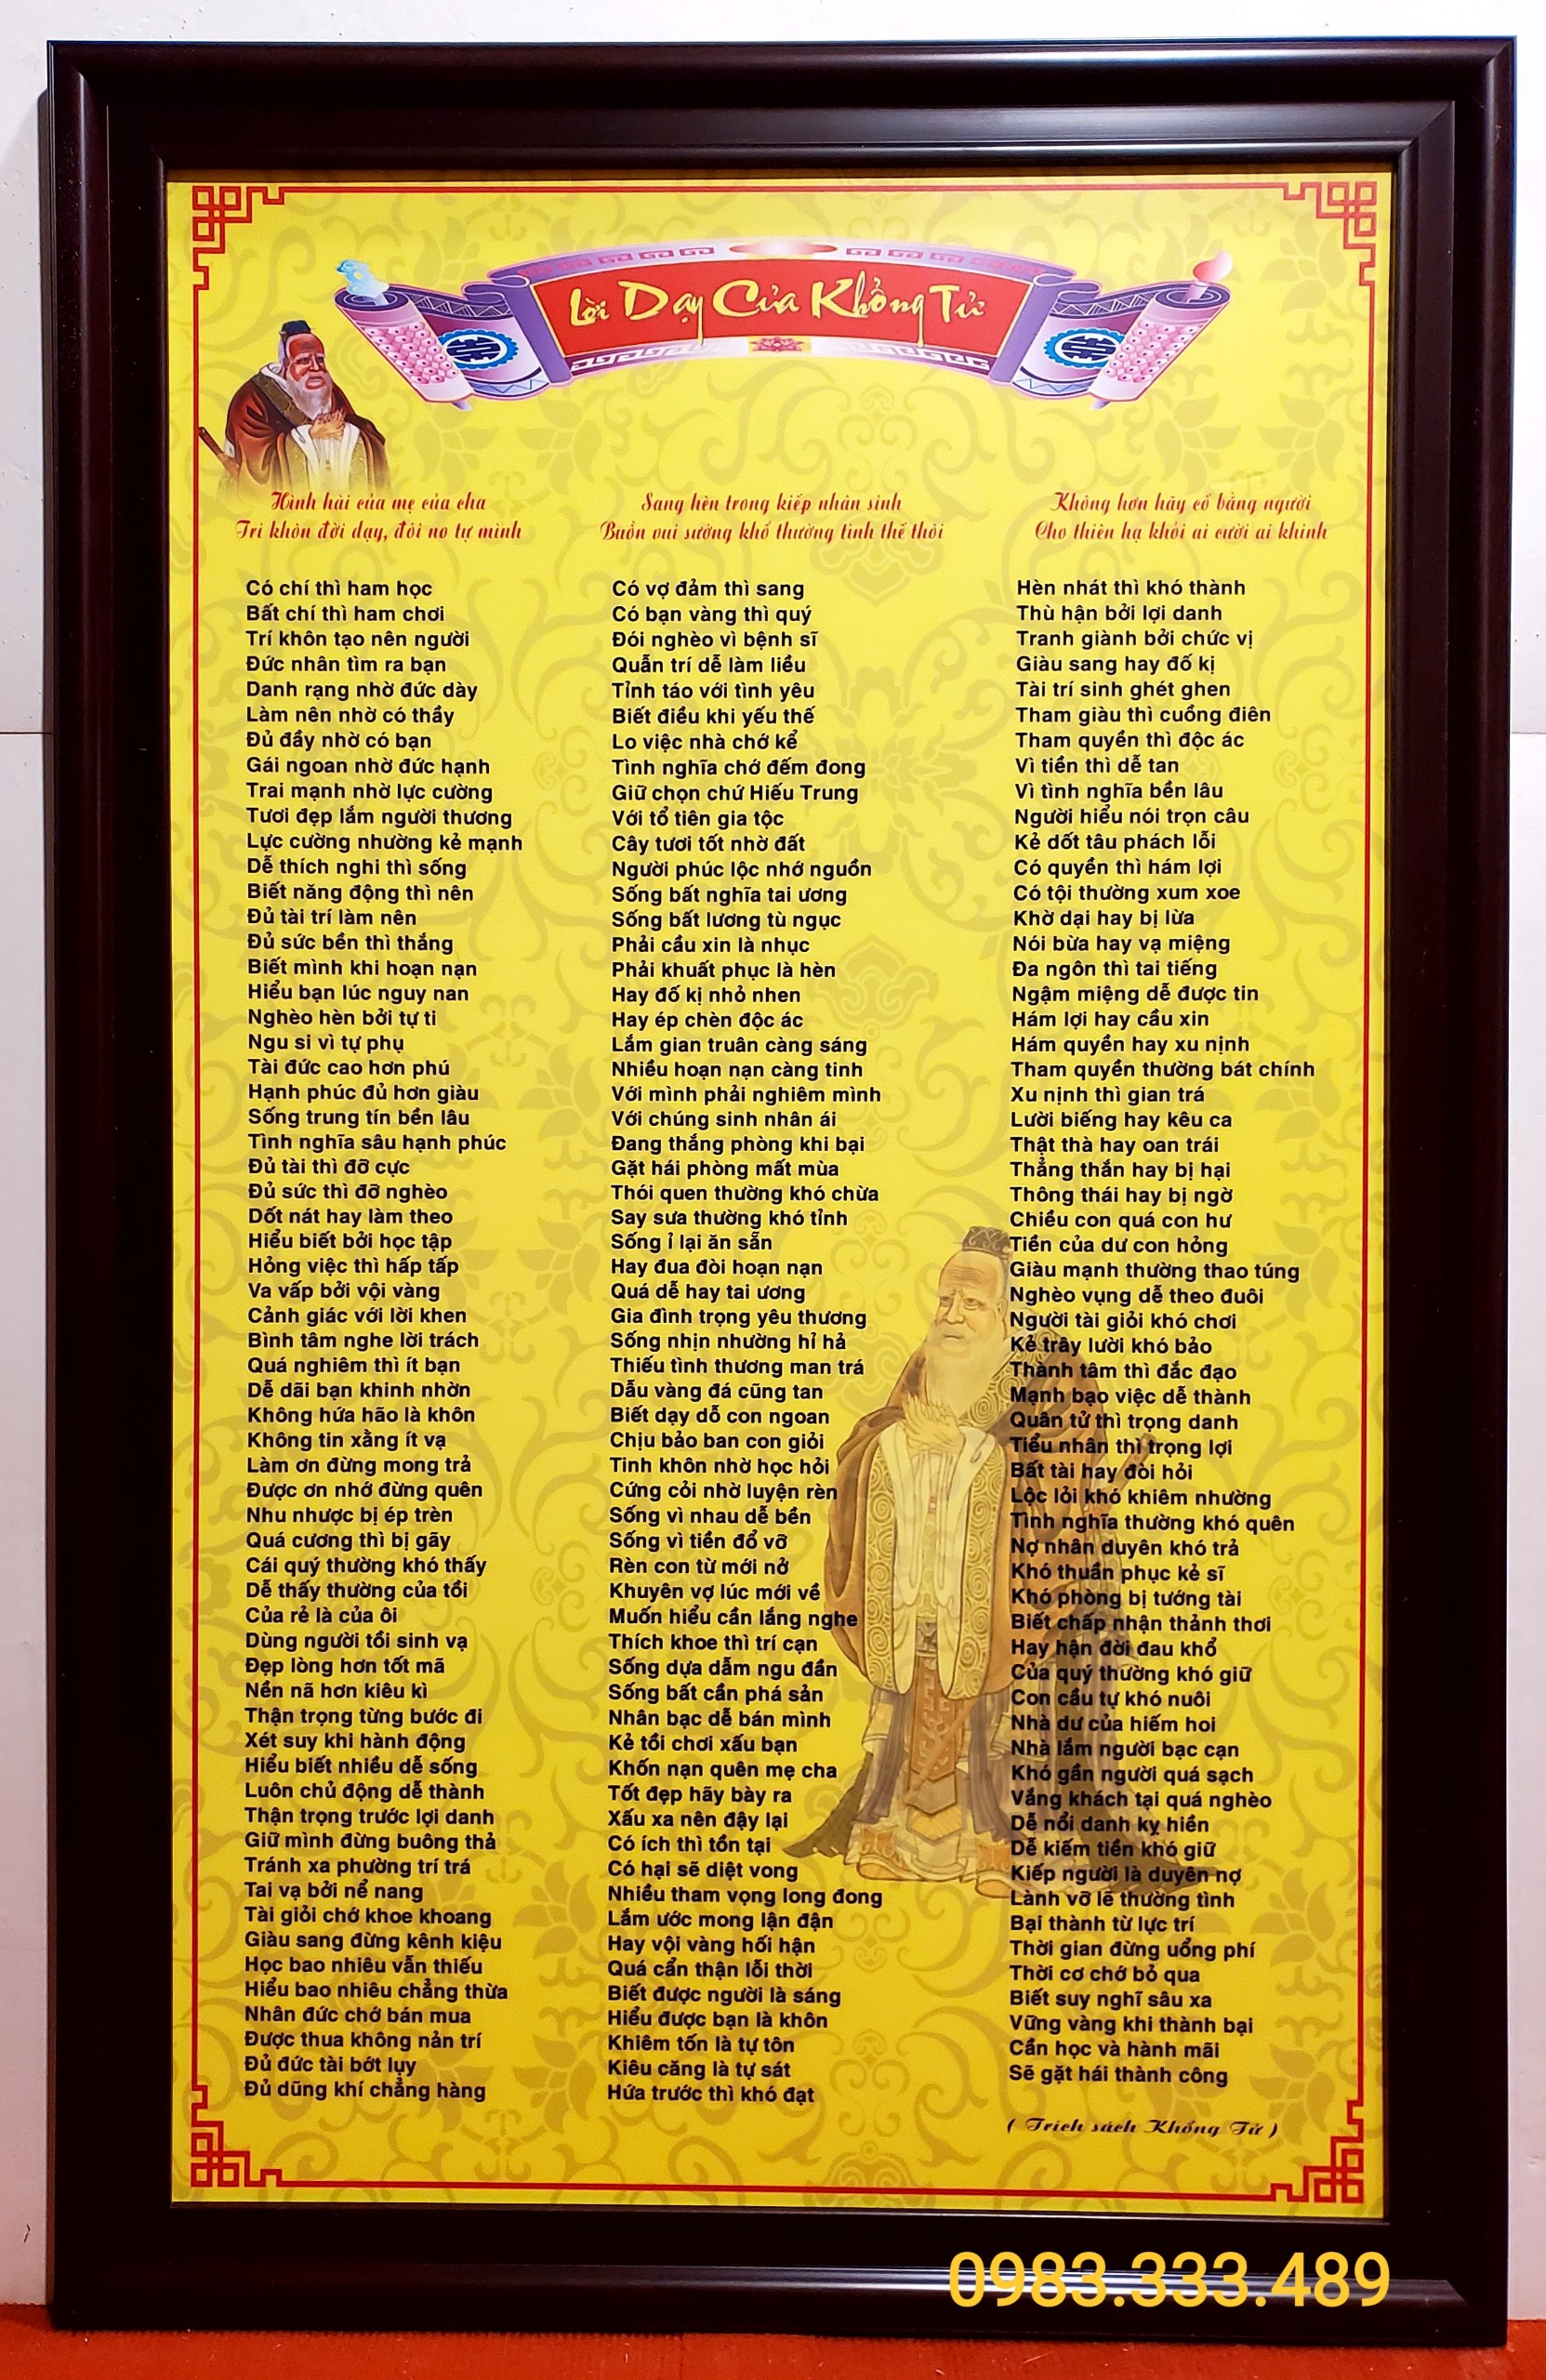 Lời Dạy Của Khổng Tử
Hình hài của mẹ của cha
Trí khôn đời dạy, đói no tự mình
Có chí thì ham học
Bất chí thì ham chơi
Trí khôn tạo nên người
Đức nhân tìm ra bạn
Danh rạng nhờ đức dày
Làm nên nhờ có thầy
Đủ đầy nhờ có bạn
Gái ngoan nhờ đức hạnh
Trai mạnh nhờ lực cường
Tươi đẹp lắm người thương
Lực cường nhường kẻ mạnh
Dễ thích nghi thì sống
Biết năng động thì nên
Đủ tài trí làm nên
Đủ sức bền thì thắng
Biết mình khi hoạn nạn
Hiểu bạn lúc nguy nan
Nghèo hèn bởi tự ti
Ngu si vì tự phụ
Tài đức cao hơn phú
Hạnh phúc đủ hơn giàu
Sống trung tín bền lâu
Tình nghĩa sâu hạnh phúc
Đủ tài thì đỡ cực
Đủ sức thì đỡ nghèo
Dốt nát hay làm theo
Hiểu biết bởi học tập
Hỏng việc thì hấp tấp
Va vấp bởi vội vàng
Cảnh giác với lời khen
Bình tâm nghe lời trách
Quá nghiêm thì ít bạn
Dễ dãi bạn khinh nhờn
Không hứa hão là khôn
Không tin xằng ít vạ
Làm ơn đừng mong trả
Được ơn nhớ đừng quên
Nhu nhược bị ép trèn
Quá cương thì bị gãy
Cái quý thường khó thấy
Dễ thấy thường của tồi
Của rẻ là của ôi
Dùng người tồi sinh vạ
Đẹp lòng hơn tốt mã
Nền nã hơn kiêu kì
Thận trọng từng bước đi
Xét suy khi hành động
Hiểu biết nhiều dễ sống
Luôn chủ động dễ thành
Thận trọng trước lợi danh
Giữ mình đừng buông thả
Tránh xa phường trí trá
Tai vạ bởi nể nang
Tài giỏi chớ khoe khoang
Giàu sang đừng kênh kiệu
Học bao nhiêu vẫn thiếu
Hiểu bao nhiêu chẳng thừa
Nhân đức chớ bán mua
Được thua không nản trí
Đủ đức tài bớt lụy
Đủ dũng khí chẳng hàng
Sang hèn trong kiếp nhân sinh
Buồn vui sướng khổ thường tình thế thôi
Có vợ đảm thì sang
Có bạn vàng thì quý
Đói nghèo vì bệnh sĩ
Quẫn trí dễ làm liều
Tỉnh táo với tình yêu
Biết điều khi yếu thế
Lo việc nhà chớ kể
Tình nghĩa chớ đếm đong
Giữ chọn chứ Hiếu Trung
Với tổ tiên gia tộc
Cây tươi tốt nhờ đất
Người phúc lộc nhớ nguồn
Sống bất nghĩa tai ương
Sống bất lương tù ngục
Phải cầu xin là nhục
Phải khuất phục là hèn
Hay đố kị nhỏ nhen
Hay ép chèn độc ác
Lắm gian truân càng sáng
Nhiều hoạn nạn càng tinh
Với mình phải nghiêm mình
Với chúng sinh nhân ái
Đang thắng phòng khi bại
Gặt hái phòng mất mùa
Thói quen thường khó chừa
Say sưa thường khó tỉnh
Sống ỉ lại ăn sẵn
Hay đua đòi hoạn nạn
Quá dễ hay tai ương
Gia đình trọng yêu thương
Sống nhịn nhường hỉ hả
Thiếu tình thương man trá
Dẫu vàng đá cũng tan
Biết dạy dỗ con ngoan
Chịu bảo ban con giỏi
Tinh khôn nhờ học hỏi
Cứng cỏi nhờ luyện rèn
Sống vì nhau dễ bền
Sống vì tiền đổ vỡ
Rèn con từ mới nở
Khuyên vợ lúc mới về
Muốn hiểu cần lắng nghe
Thích khoe thì trí cạn
Sống dựa dẫm ngu đần
Sống bất cần phá sản
Nhân bạc dễ bán mình
Kẻ tồi chơi xấu bạn
Khốn nạn quên mẹ cha
Tốt đẹp hãy bày ra
Xấu xa nên đậy lại
Có ích thì tồn tại
Có hại sẽ diệt vong
Nhiều tham vọng long đong
Lắm ước mong lận đận
Hay vội vàng hối hận
Quá cẩn thận lỗi thời
Biết được người là sáng
Hiểu được bạn là khôn
Khiêm tốn là tự tôn
Kiêu căng là tự sát
Hứa trước thì khó đạt
Không hơn hãy cố bằng người
Cho thiên hạ khỏi ai cười ai khinh
Hèn nhát thì khó thành
Thù hận bởi lợi danh
Tranh giành bởi chức vị
Giàu sang hay đố kị
Tài trí sinh ghét ghen
Tham giàu thì cuồng điên
Tham quyền thì độc ác
Vì tiền thì dễ tan
Vì tình nghĩa bền lâu
Người hiểu nói trọn câu
Kẻ dốt tâu phách lỗi
Có quyền thì hám lợi
Có tội thường xum xoe
Khờ dại hay bị lừa
Nói bừa hay vạ miệng
Đa ngôn thì tai tiếng
Ngậm miệng dễ được tin
Hám lợi hay cầu xin
Hám quyền hay xu nịnh
Tham quyền thường bát chính
Xu nịnh thì gian trá
Lười biếng hay kêu ca
Thật thà hay oan trái
Thẳng thắn hay bị hại
Thông thái hay bị ngờ
Chiều con quá con hư
Tiền của dư con hỏng
Giàu mạnh thường thao túng
Nghèo vụng dễ theo đuôi
Người tài giỏi khó chơi
Kẻ trây lười khó bảo
Thành tâm thì đắc đạo
Mạnh bạo việc dễ thành
Quân tử thì trọng danh
Tiểu nhân thì trọng lợi
Bất tài hay đòi hỏi
Lộc lỏi khó khiêm nhường
Tình nghĩa thường khó quên
Nợ nhân duyên khó trả
Khó thuần phục kẻ sĩ
Khó phòng bị tướng tài
Biết chấp nhận thảnh thơi
Hay hận đời đau khổ
Của quý thường khó giữ
Con cầu tự khó nuôi
Nhà dư của hiếm hoi
Nhà lắm người bạc cạn
Khó gần người quá sạch
Vắng khách tại quá nghèo
Dễ nổi danh kỵ hiền
Dễ kiếm tiền khó giữ
Kiếp người là duyên nợ
Lành vỡ lẽ thường tình
Bại thành từ lực trí
Thời gian đừng uổng phí
Thời cơ chớ bỏ qua
Biết suy nghĩ sâu xa
Vững vàng khi thành bại
Cần học và hành mãi
Sẽ gặt hái thành công
( Trích sách Khổng Tử )
0983.333.489